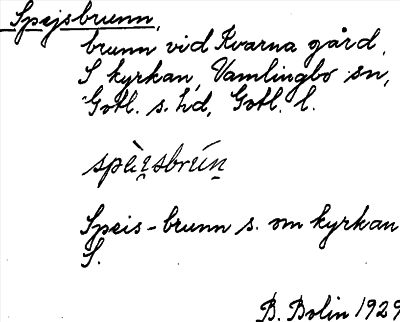 Spejsbrunn,
brunn vid Kvarna gård,
S kyrkan, Vamlingbo sn,
Gotl. s. hd, Gotl. l.
spèi̯sbrún̥
Speis-brunn s. om kyrkan
S.
B. Bolin 1929